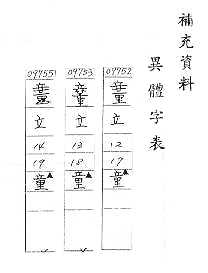 補充資料
異體字表
09752
立
12
17
童▲
09753
立
13
18
童▲
09755
立
14
19
童▲